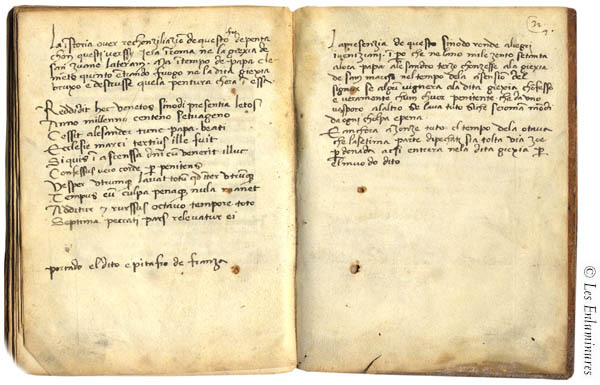 La istoria over rechonziliazio de questo fo depenta
chon questi verssi iera in roma ne la giexia de
san zuane lateran. Ma i tempo de papa cle
meto quinto etando fuogo ne la dita giexia
bruxo e destrusse quela pentura chora i esse
Reddidit hec venetos sinodi presentia letos
Anno millenno centeno setuageno
Cesset alesander tunc papa beati
Eclesie marci tertius ille fuit
Siquis i ascenssa dni cu venerit illuc
Confessus vero corde p penitens
Vesper utrumq lavat totu qd iter utruq
Tempus eu culpa penaq nula manet
Additur z rurssus octavo tempore toto
Septima peccati pars relevatur ei
portado el dito epitafio de franza
La presenzia de questo sinodo rende aliegri
i veniziani i po che ne lano mile zento setanta
alora papa alesandro terzo chonzesse ala giexia
de san marcho nel tempo dela asensio del
signor se algu vignera ala dita giexia chofesse
e veramente chun chuor penitente che da uno
vesporo al altro se lava tuto
de ogni cholpa e pena
E anchora azonze tuto el tempo dela otava
che la setima parte di pechati sia tolta via zoe
perdonada a essi entrera nela dita giexia p
El muodo dito
© Les Enluminures